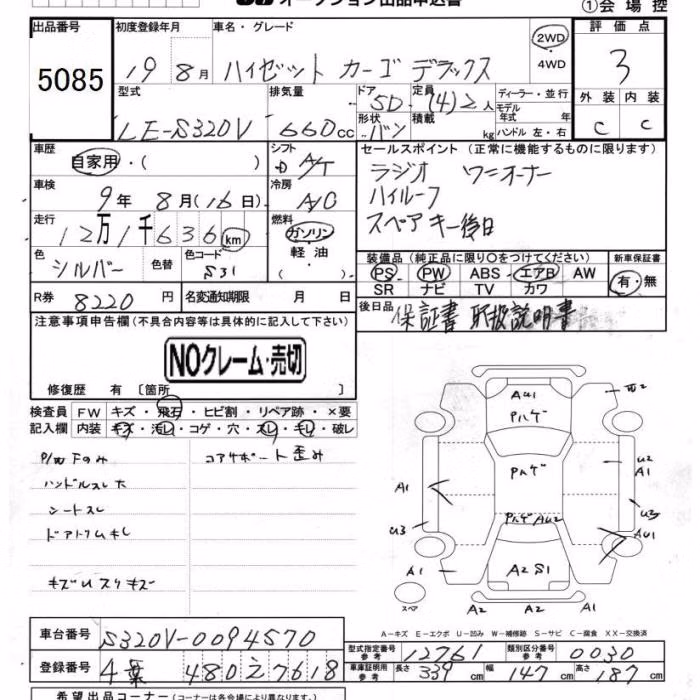 オークション出品申込書
①会場控
出品番号 初度登録年月 車名・グレード 評価点
5085 19 8月 ハイゼット カーゴ デラックス 2WD・4WD 3
型式 排気量 ドア 5D 定員 (4)2人 ディーラー・並行 外装 内装
LE-S320V 660cc 形状 バン 積載 kg モデル年式 年 ハンドル 左・右 C C
車歴 シフト セールスポイント (正常に機能するものに限ります)
自家用・( ) A/T ラジオ ワンオーナー
車検 冷房 ハイルーフ
9年 8月(16日) A/C スペアキー後日
走行 燃料
12万1千636km ガソリン・軽油
色 色替 色コード 装備品 (純正品に限り○をつけてください) 新車保証書
シルバー S31 PS PW ABS エアB AW 有・無
SR ナビ TV カワ
R券 8220円 名変通知期限 月 日 後日品 保証書 取扱説明書
注意事項申告欄(不具合内容等は具体的に記入して下さい)
NOクレーム・売切
修復歴 有 [箇所 ]
検査員 FW キズ・飛石・ヒビ割・リペア跡・×要
記入欄 内装 キズ・汚レ・コゲ・穴・スレ・キレ・破レ
コアサポート歪み
ハンドルスレ大
シートスレ
キズUスリキズ
AU1
Pハゲ
Pハゲ
U2
A1
A1
U3
U3
Pハゲ AU2
AU1
A1
A2 S1
A1
スペア
A2
A2
A-キズ E-エクボ U-凹み W-補修跡 S-サビ C-腐食 XX-交換済
車台番号 S320V-0094570
型式指定番号 参考 12761 類別区分番号 参考 0030
登録番号 480 27618
車庫証明用 参考 長さ 339cm 幅 147cm 高さ 187cm
希望出品コーナー(コーナーは各会場により異なります)